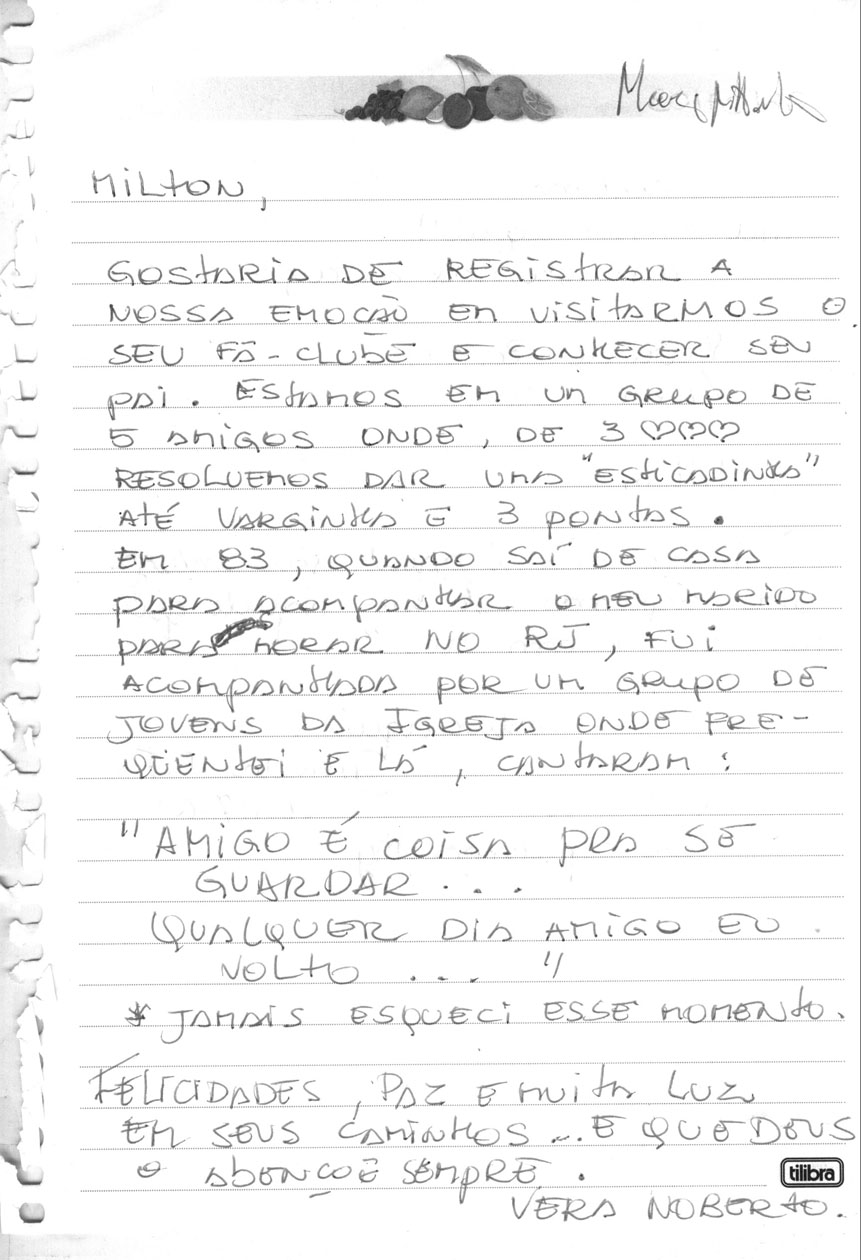 MILTON,
GOSTARIA DE REGISTRAR A
NOSSA EMOÇÃO EM VISITARMOS O
SEU FÃ-CLUBE E CONHECER SEU
PAI. ESTAMOS EM UM GRUPO DE
5 AMIGOS ONDE, DE 3 ♡♡♡
RESOLVEMOS DAR UMA "ESTICADINHA"
ATÉ VARGINHA E 3 PONTAS.
EM 83, QUANDO SAÍ DE CASA
PARA ACOMPANHAR O MEU MARIDO
PARA MORAR NO RJ, FUI
ACOMPANHADA POR UM GRUPO DE
JOVENS DA IGREJA ONDE FRE-
QÜENTEI E LÁ, CANTARAM:
"AMIGO É COISA PRA SE
GUARDAR...
QUALQUER DIA AMIGO EU
VOLTO ..."
* JAMAIS ESQUECI ESSE MOMENTO.
FELICIDADES, PAZ E MUITA LUZ
EM SEUS CAMINHOS... E QUE DEUS
O ABENÇOE SEMPRE.
tilibra
VERA NOBERTO.